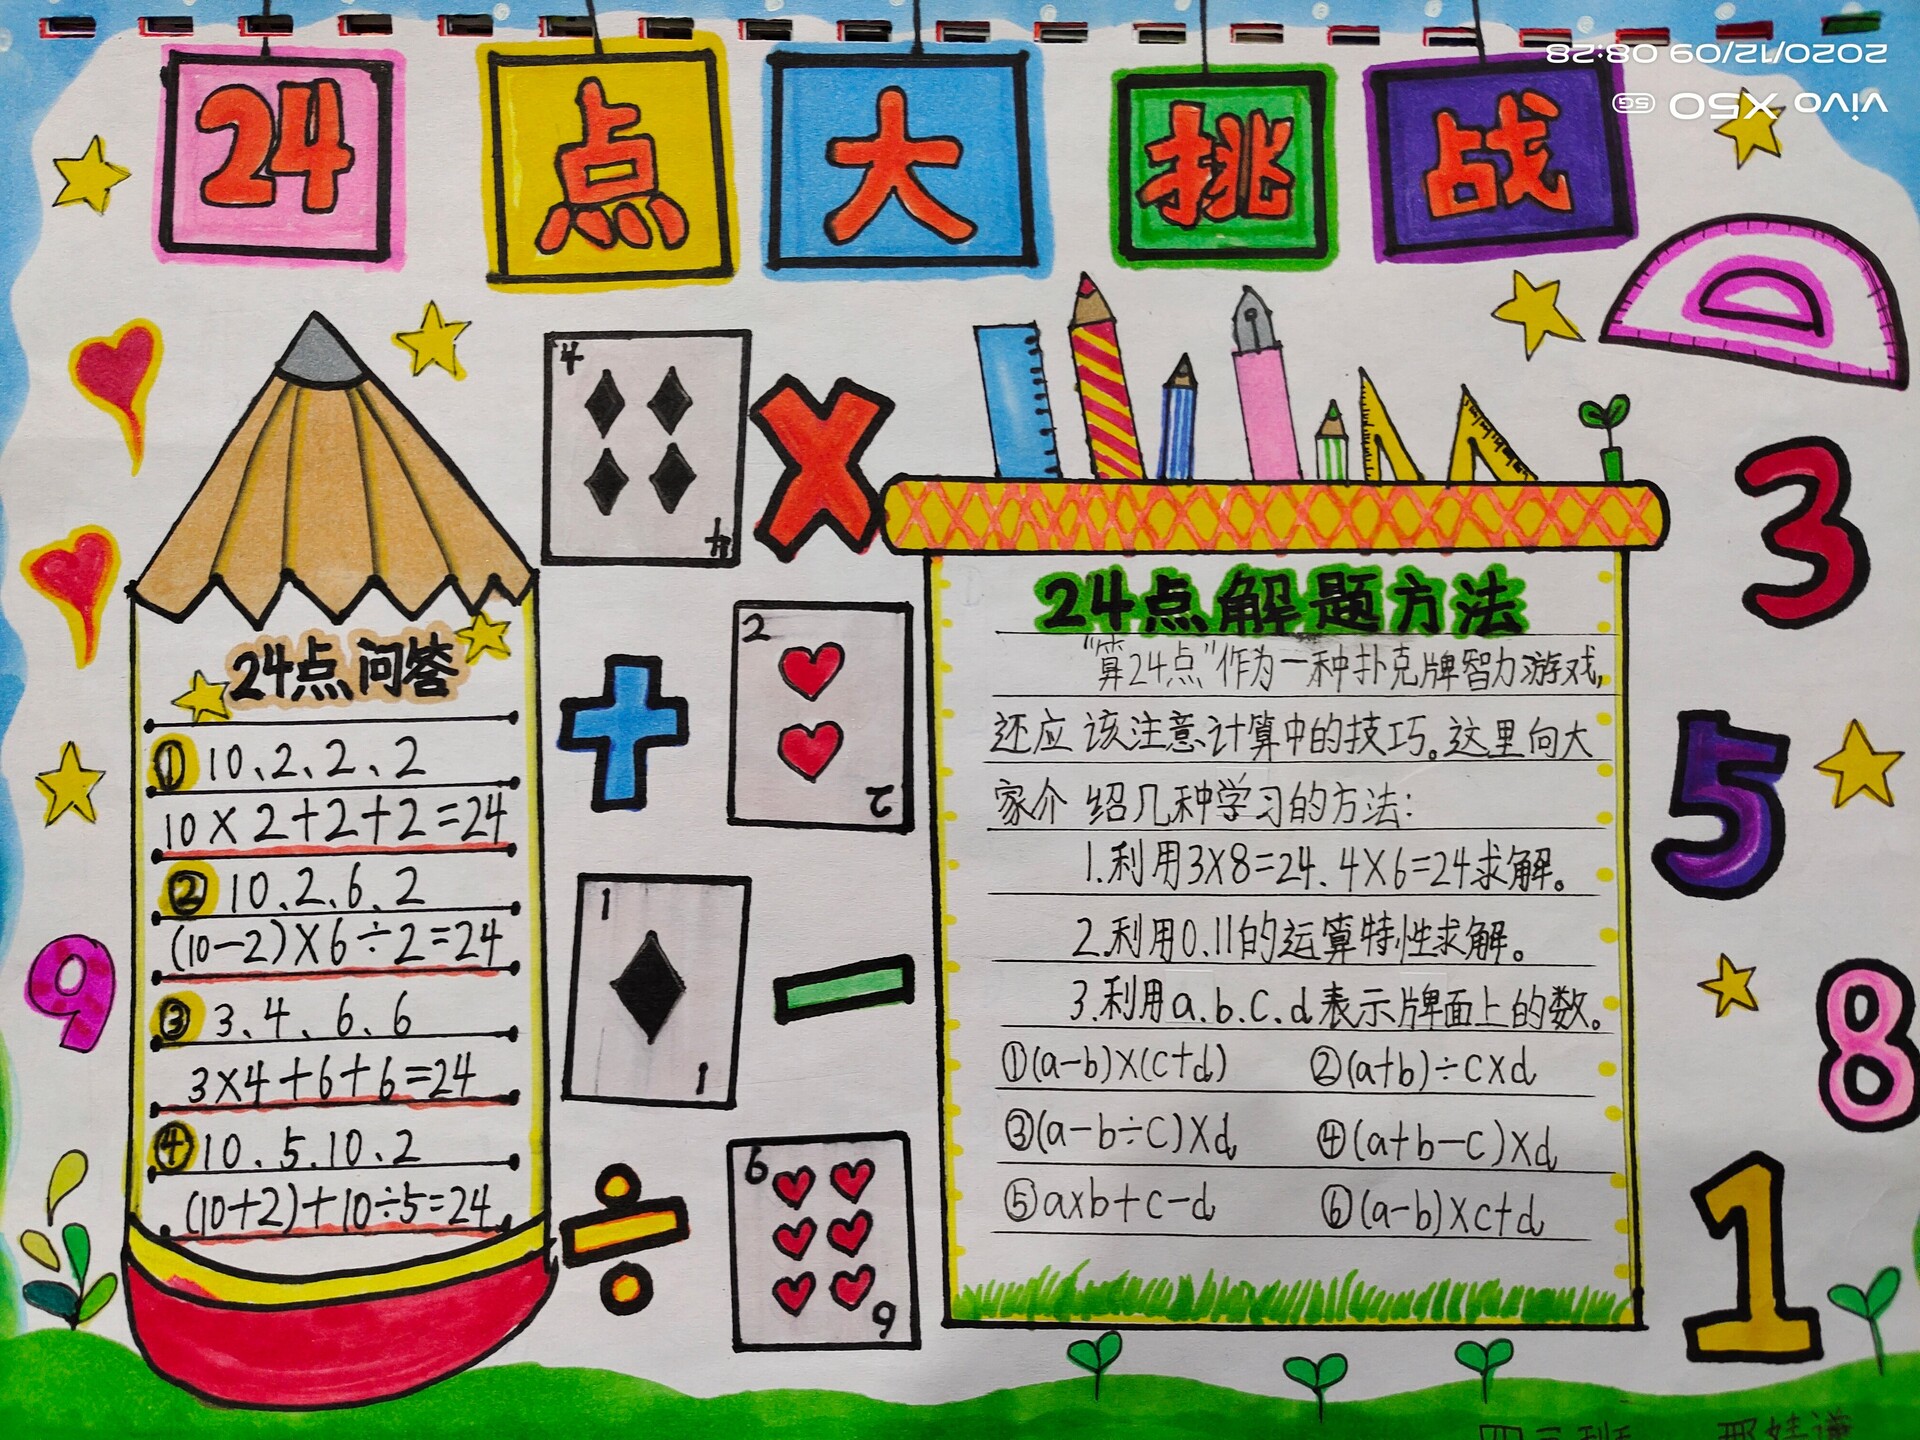 24点大挑战
2020/12/09 08:28
vivo X50 5G
24点问答
①10、2、2、2
10×2+2+2=24
②10、2、6、2
(10-2)×6÷2=24
③3、4、6、6
3×4+6+6=24
④10、5、10、2
(10+2)+10÷5=24
4
4
×
2
2
+
1
1
-
6
6
÷
24点解题方法
"算24点"作为一种扑克牌智力游戏,
还应该注意计算中的技巧。这里向大
家介绍几种学习的方法:
1.利用3×8=24、4×6=24求解。
2.利用0.11的运算特性求解。
3.利用a.b.c.d表示牌面上的数。
①(a-b)×(c+d) ②(a+b)÷c×d
③(a-b÷c)×d ④(a+b-c)×d
⑤a×b+c-d ⑥(a-b)×c+d
9
3
5
8
1